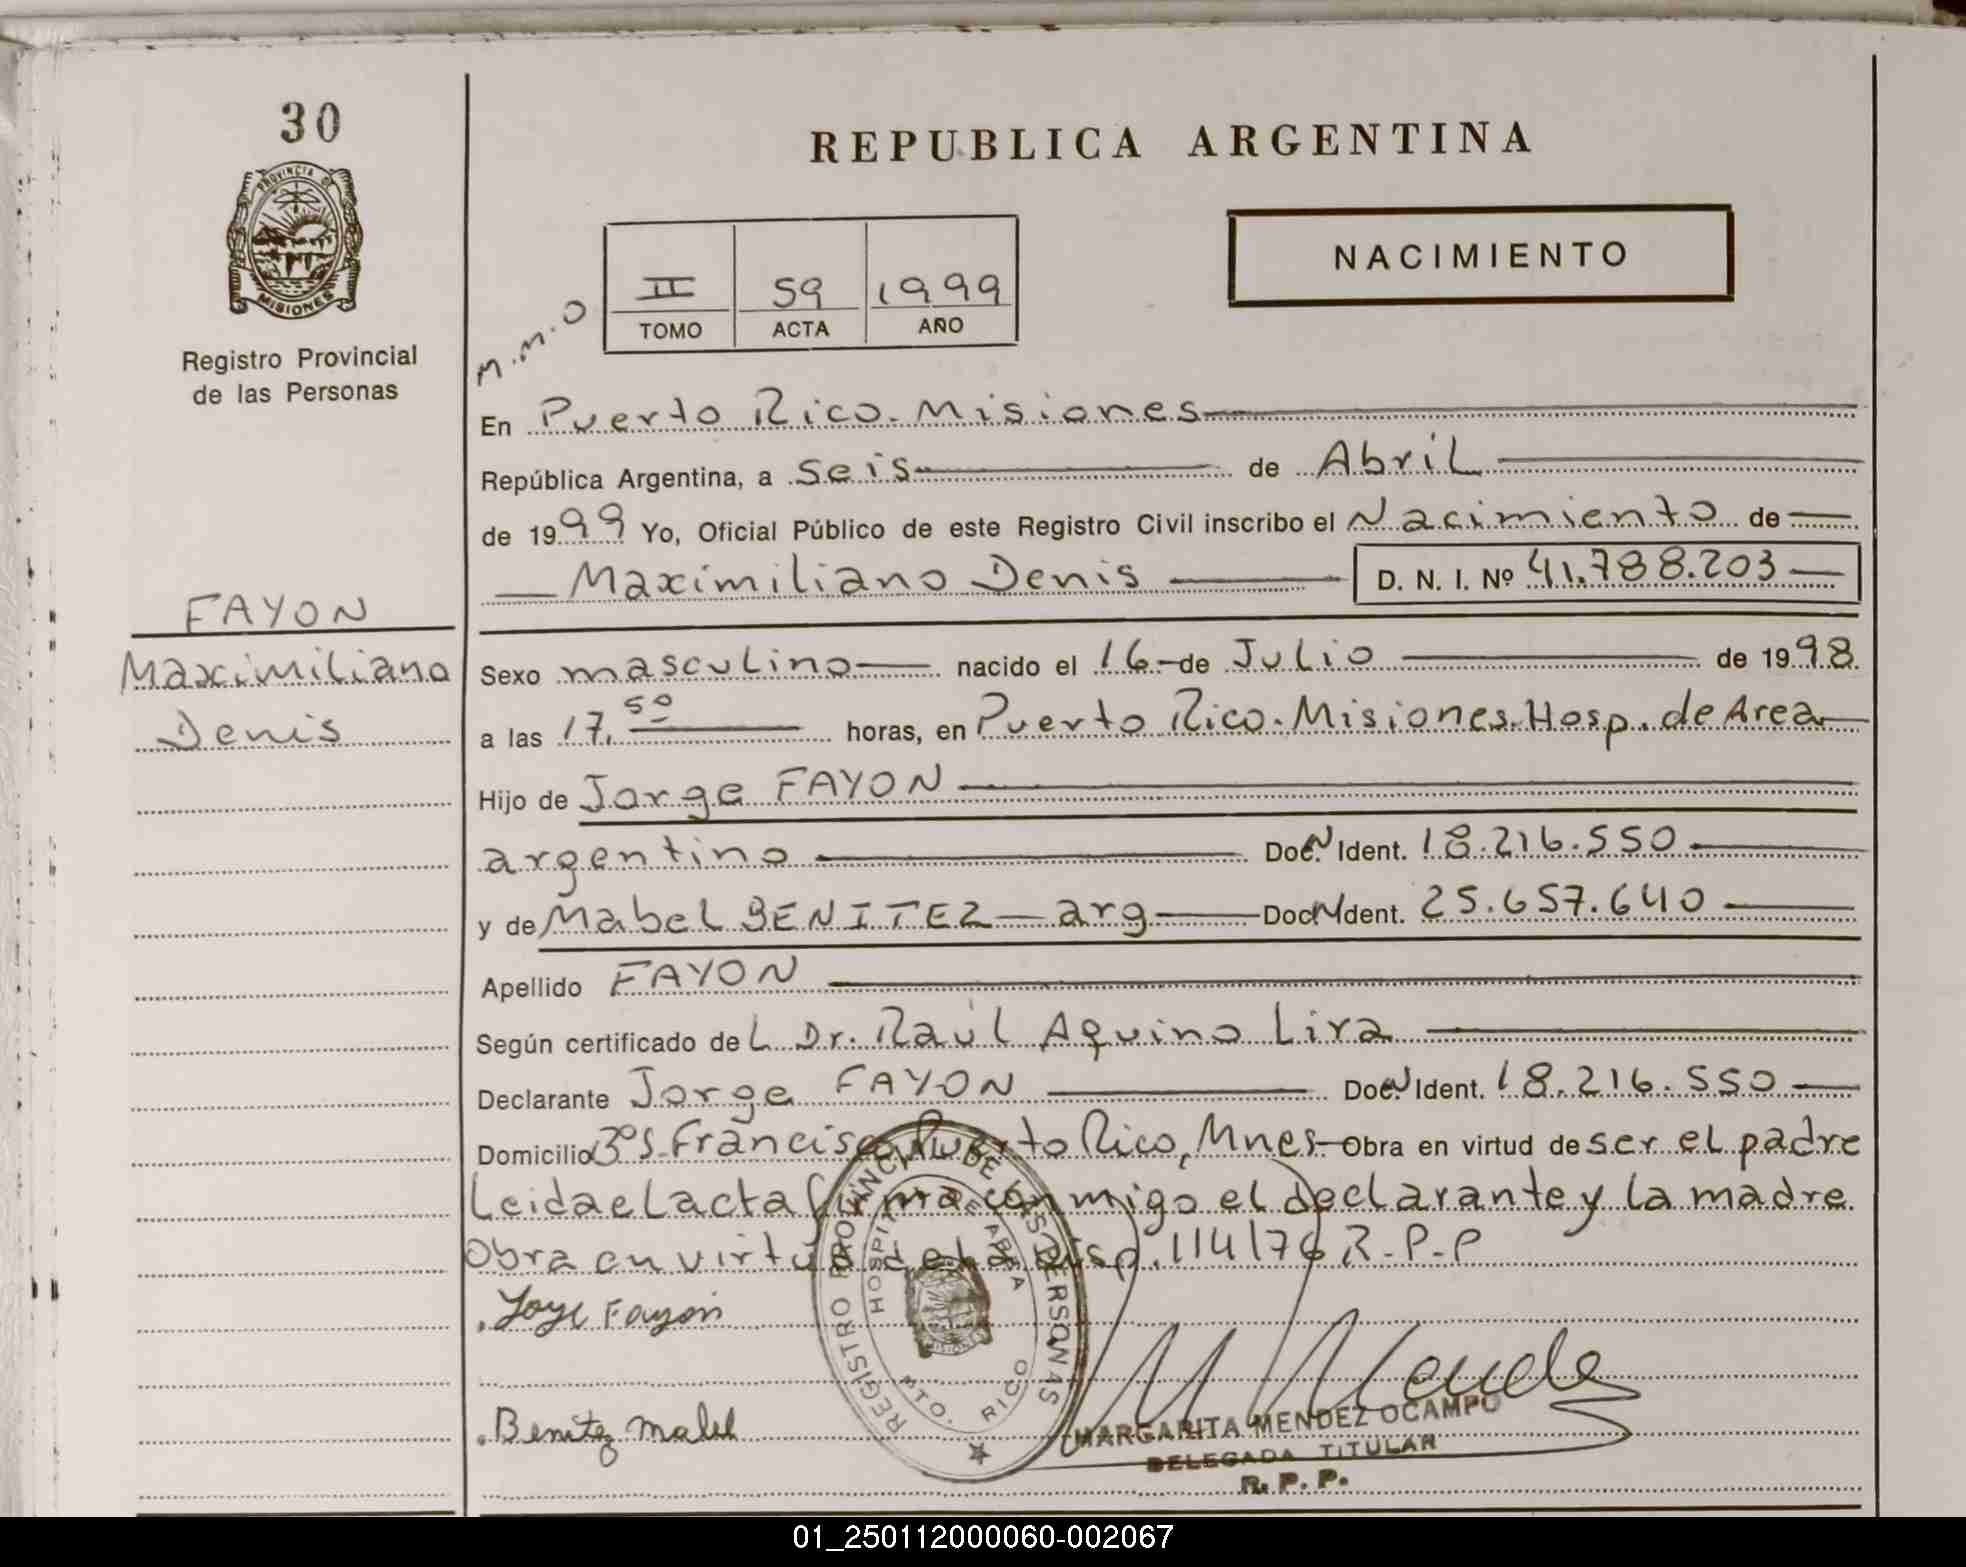 30
REPUBLICA ARGENTINA
PROVINCIA DE
MISIONES
Registro Provincial
de las Personas
NACIMIENTO
II 59 1999
TOMO ACTA AÑO
M.M.O
En Puerto Rico. Misiones
República Argentina, a seis de Abril
de 1999 Yo, Oficial Público de este Registro Civil inscribo el Nacimiento de
Maximiliano Denis D. N. I. Nº 41.788.203
FAYON
Maximiliano
Denis
Sexo masculino nacido el 16 de Julio de 1998
a las 17.50 horas, en Puerto Rico. Misiones. Hosp. de Area
Hijo de Jorge FAYON
argentino Doc. N Ident. 18.216.550
y de Mabel BENITEZ arg Doc N Ident. 25.657.640
Apellido FAYON
Según certificado del Dr. Raúl Aquino Lira
Declarante Jorge FAYON Doc. N Ident. 18.216.550
Domicilio Bº S. Francisco Puerto Rico, Mnes Obra en virtud de ser el padre
Leida el acta firma conmigo el declarante y la madre.
Obra en virtud de la Disp. 114/76 R-P-P
Jorge Fayon
Benitez Mabel
REGISTRO PROVINCIAL DE LAS PERSONAS
HOSPITAL DE AREA
MISIONES
PTO. RICO
M Mendez
MARGARITA MENDEZ OCAMPO
DELEGADA TITULAR
R. P. P.
01_250112000060-002067